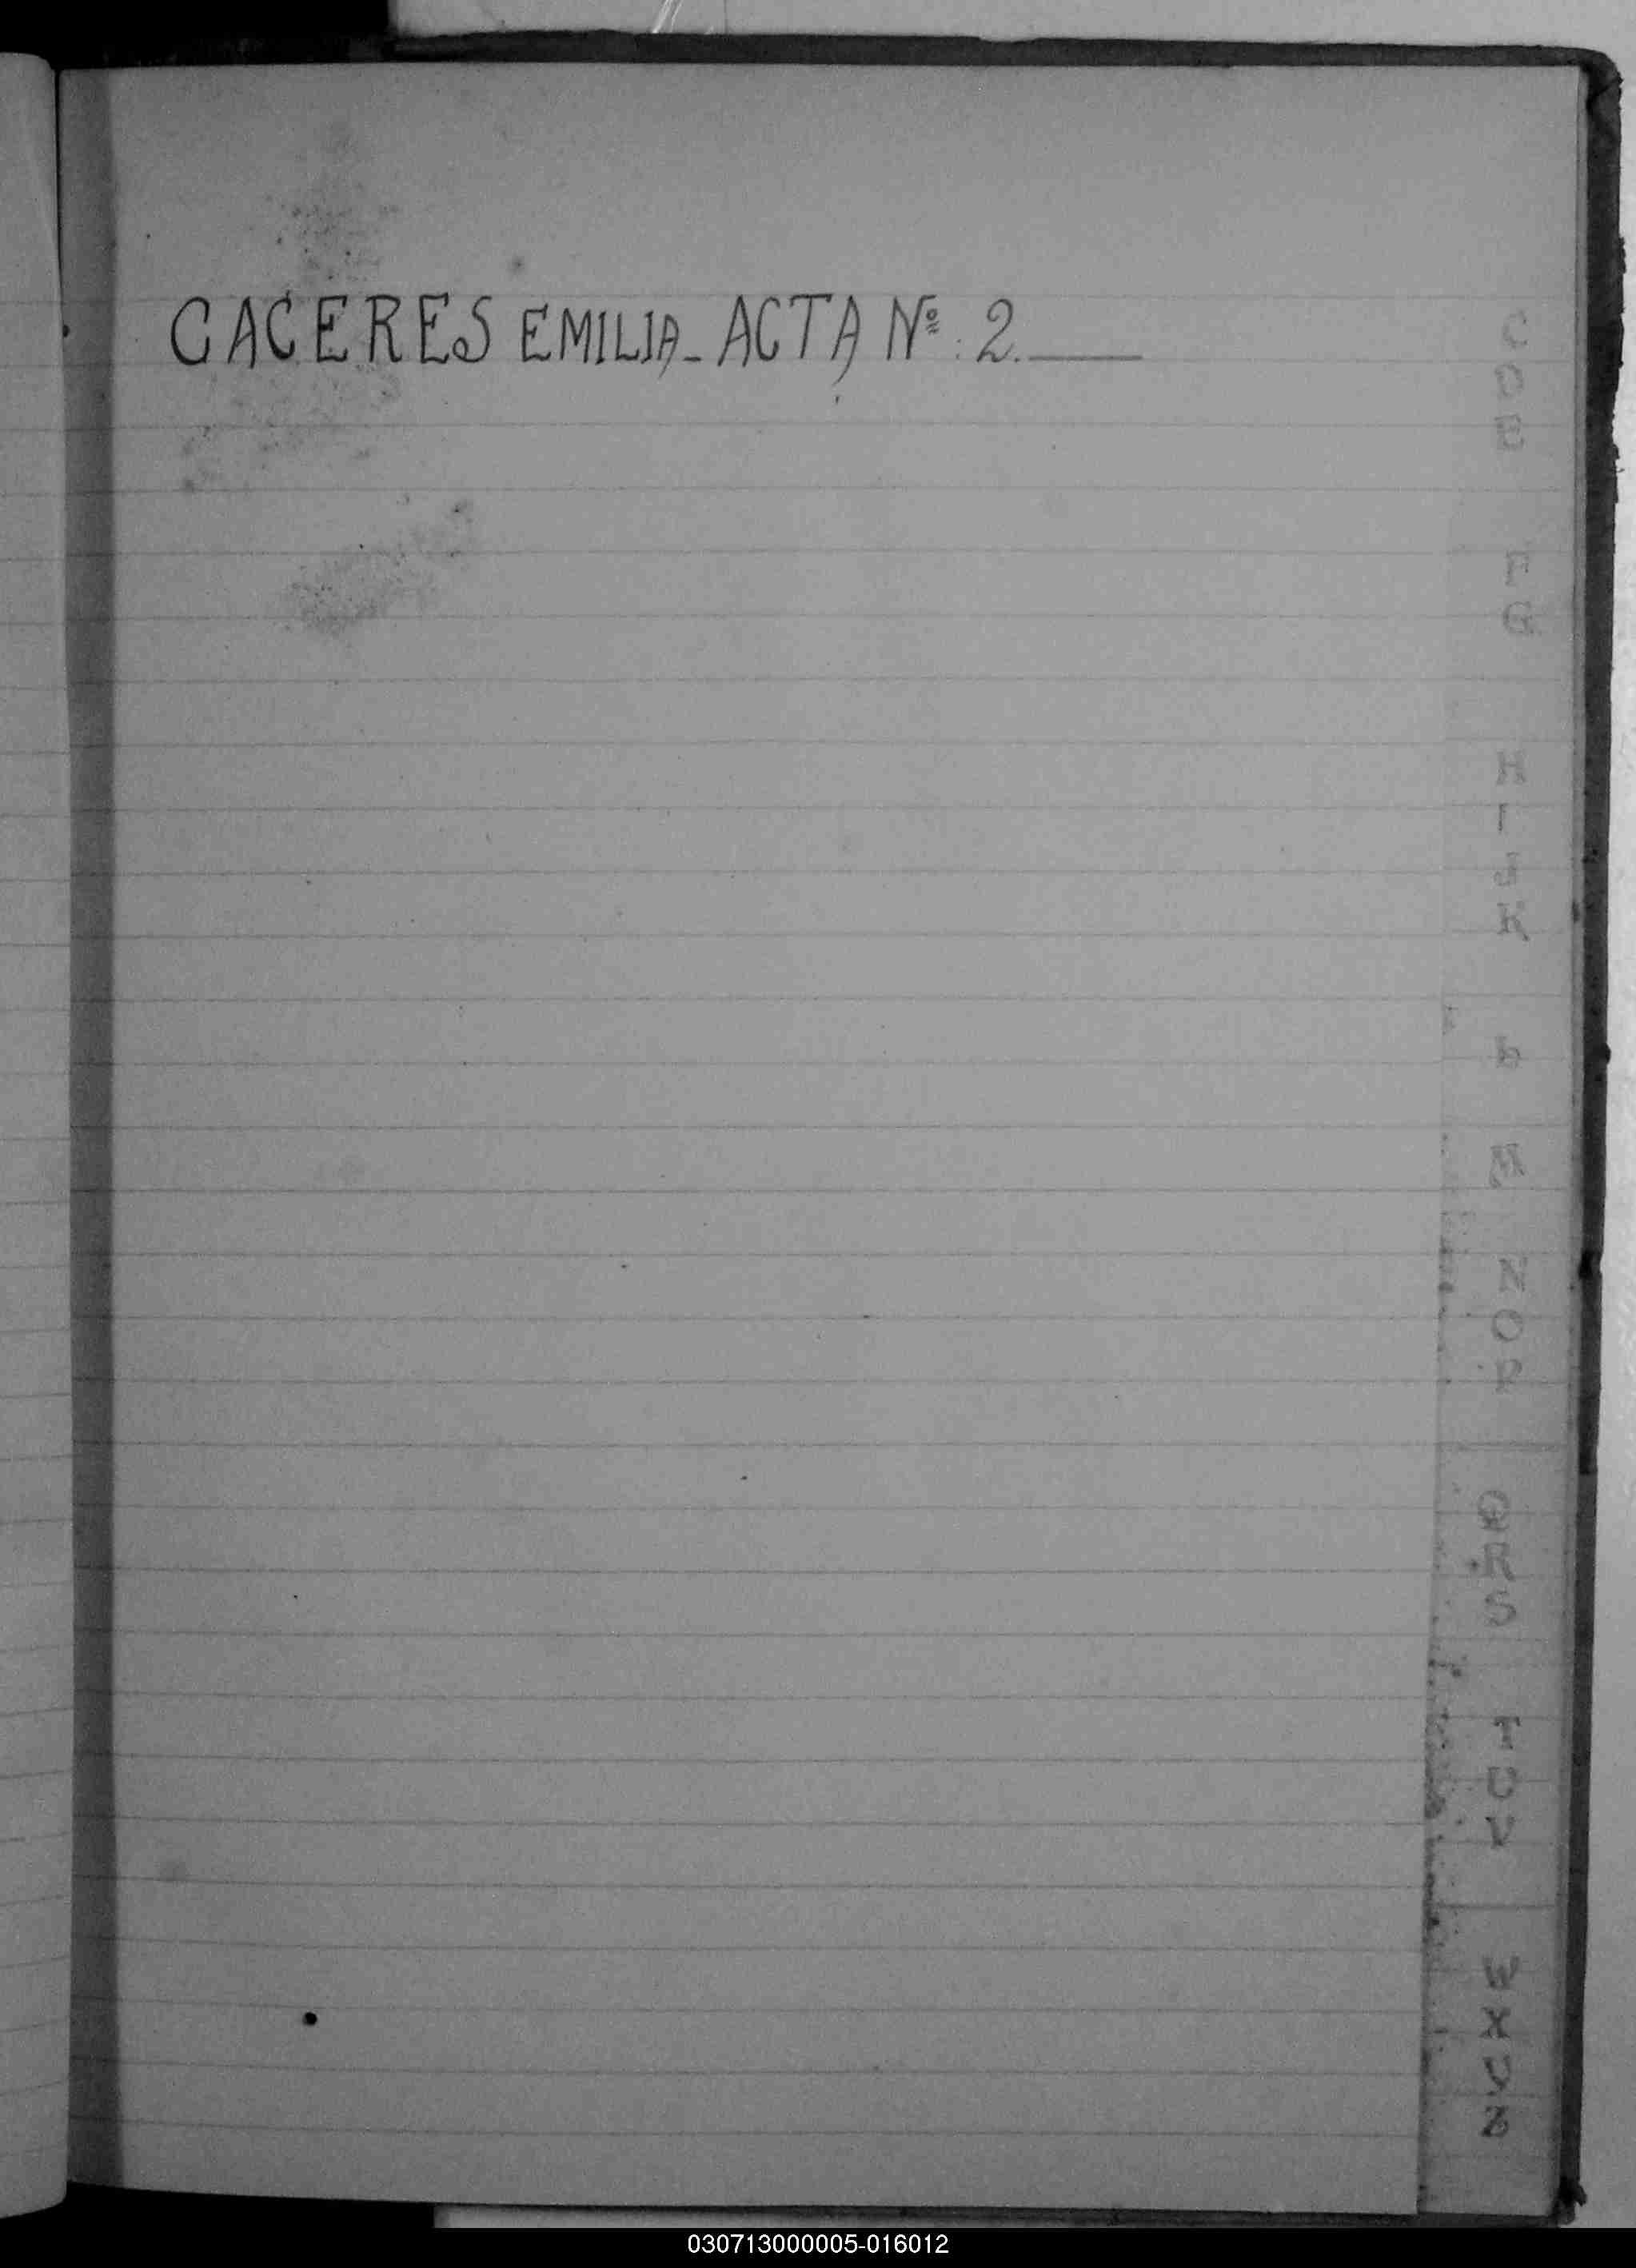 CACERES EMILIA - ACTA Nº: 2.
C
D
E
F
G
H
I
J
K
L
M
N
O
P
Q
R
S
T
U
V
W
X
Y
Z
030713000005-016012